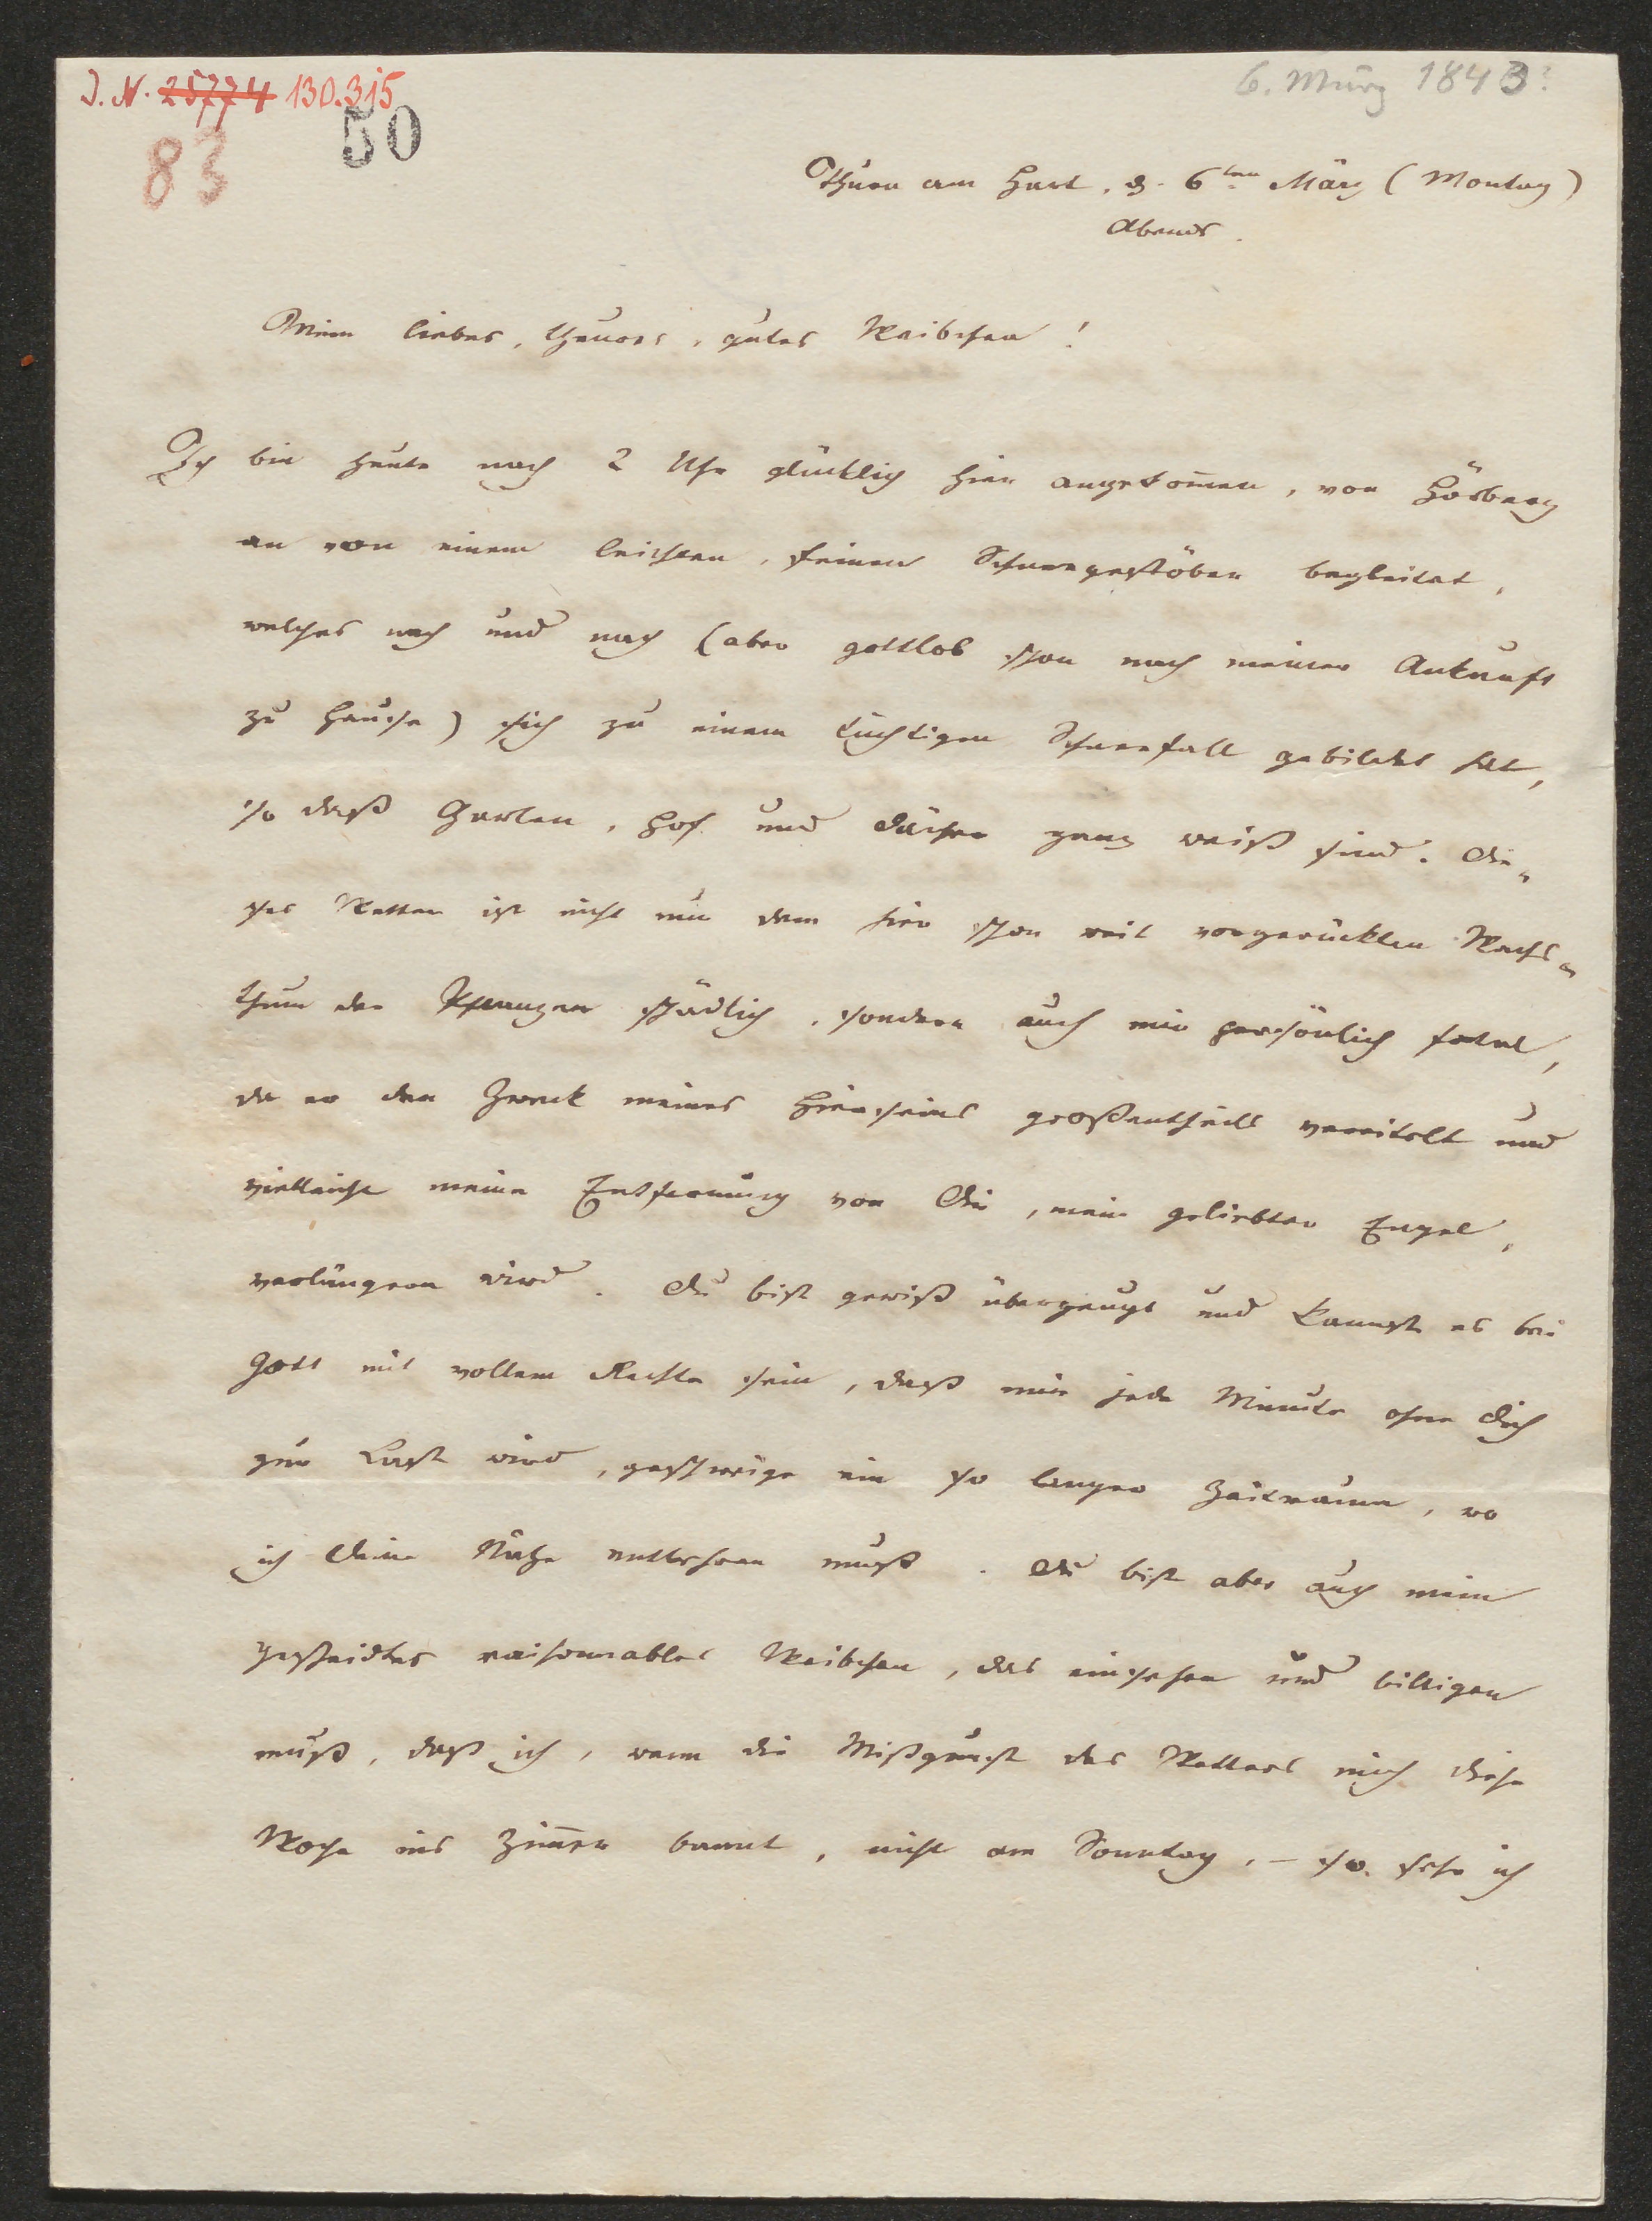 I. N. 25774 130.315
6. März 1843?
83
50
Thurn am Hart, d. 6ten März (Montag)
Abends.
Mein liebes, theures, gutes Weibchen!
Ich bin heute nach 2 Uhr glücklich hier angekom̄en, von
an von einem leichten, feinen Schneegestöber begleitet,
welches nach und nach (aber gottlob schon nach meiner Ankunft
zu Hause) sich zu einem tüchtigen Schneefall gebildet hat,
so daß Garten, Hof und Dächer ganz weiß sind. Die„
ses Wetter ist nicht nur dem hier schon weit vorgerückten Wachs„
thum der Pflanzen schädlich, sondern auch mir persönlich fatal,
da er den Zweck meines Hierseins großentheils vereitelt und
vielleicht meine Entfernung von Dir, mein geliebter Engel,
verlängern wird. Du bist gewiß überzeugt und kannst es bei
Gott mit vollem Rechte sein, daß mir jede Minute ohne Dich
zur Last wird, geschweige ein so langer Zeitraum, wo
ich Deine Nähe entbehren muß. Du bist aber auch mein
gescheidtes raisonnables Weibchen, das einsehen und billigen
muß, daß ich, wenn die Mißgunst des Wetters mich diese
Woche ins Zim̄er bannt, nicht am Sonntag, – so. sehr ich